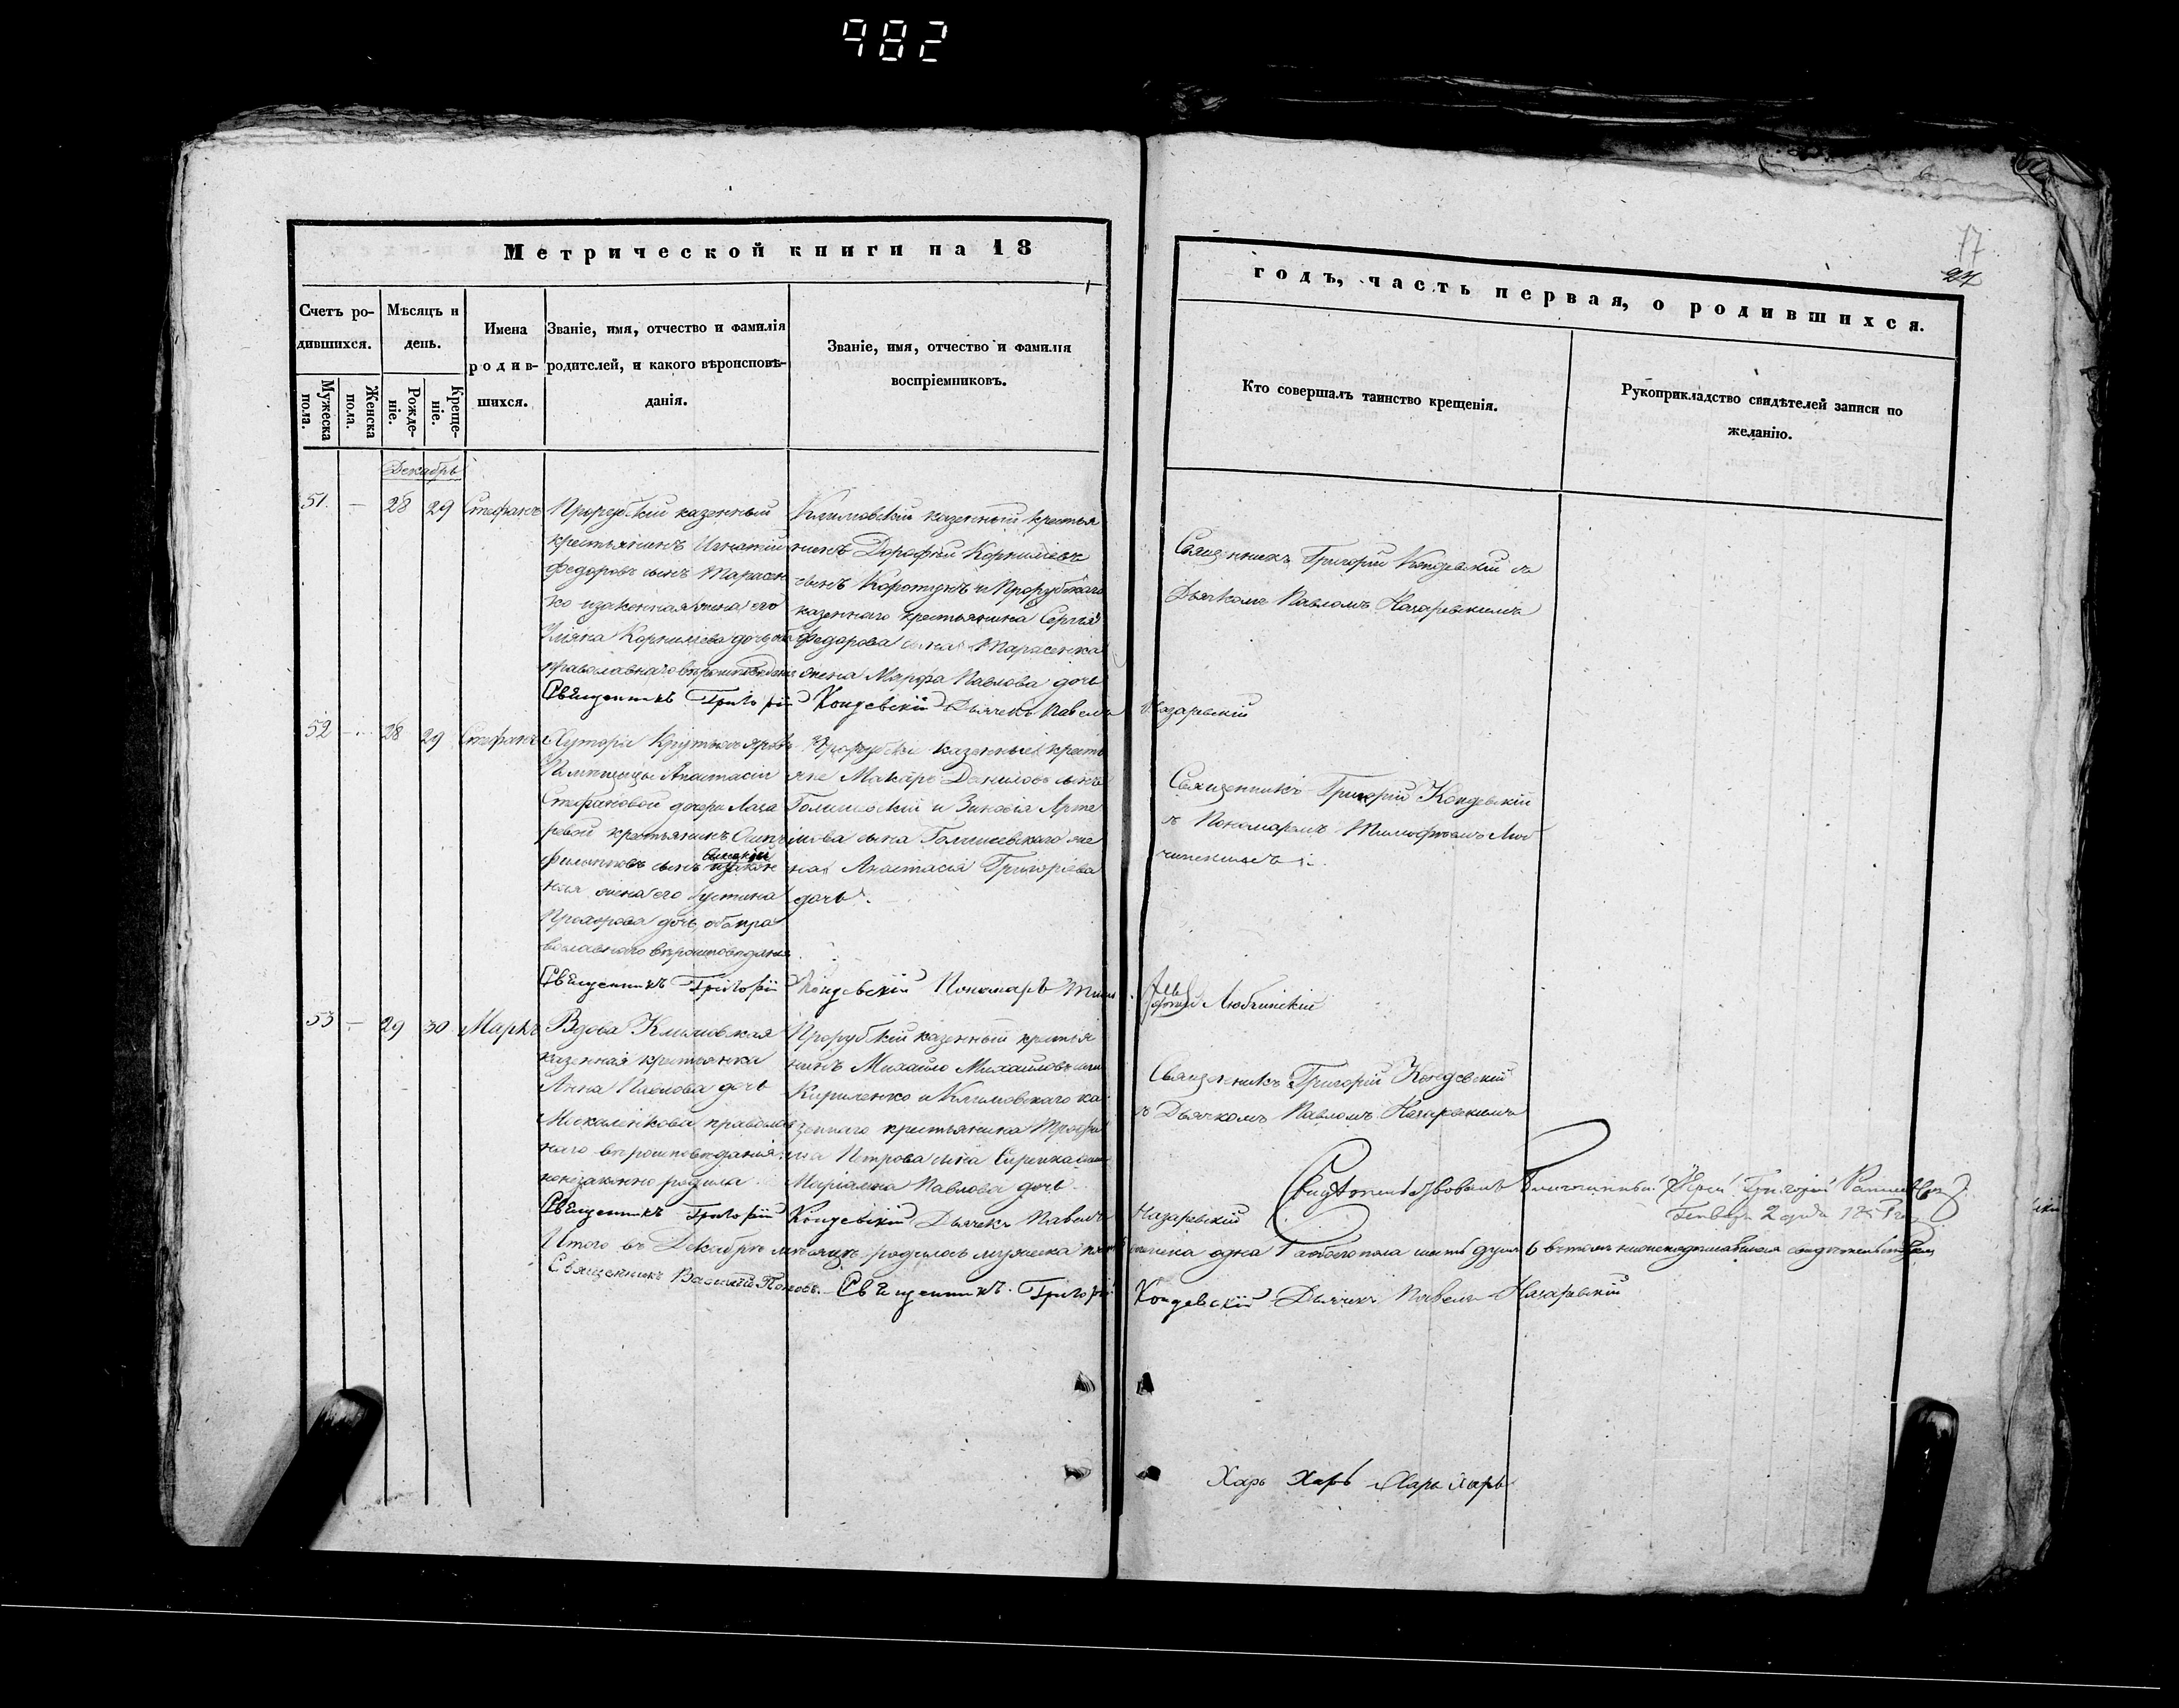 982
Метрической книги на 18
годъ, часть первая, о родившихся.
77
27
Счетъ ро-
дившихся.
Мужеска
пола.
Женска
пола.
Мѣсяцъ и
день.
Рожде-
ніе.
Креще-
ніе.
Имена
родив-
шихся.
Званіе, имя, отчество и фамилія
родителей, и какого вѣроисповѣ-
данія.
Званіе, имя, отчество и фамилія
воспріемниковъ.
Кто совершалъ таинство крещенія.
Рукоприкладство свидѣтелей записи по
желанію.
Декабрь
51. — 28 29 Стефанъ
Прорубскій казенный
крестьянинъ Игнатій
Федоровъ сынъ Тарасен
ко и законная жена его
Корнилієва дочь оба
православнаго вѣроисповѣданія
Климовскій казенный крестья
нинъ Дорофей Корниліевъ
сынъ Коротунъ и Прорубскаго
казеннаго крестьянина Сергія
Федорова сына Тарасенка
жена Марфа Павлова дочь
Священникъ Григорій Кондевскій съ
Дьячкомъ Павломъ Назаревскимъ
Священникъ Григорій Кондевскій Дьячекъ Павелъ Назаревскій
52 — 28 29 Стефанъ
Хутора
Помѣщицы Анастасіи
Стефановой дочери Лаза
ревой крестьянинъ
Филипповъ сынъ
ная жена его Іустина
Прохорова дочь, оба пра
вославнаго вѣроисповѣданія
Прорубскіе казенные кресть
яне Макаръ Даниловъ сынъ
и Зиновія Арте
мова сына же
на Анастасія Григоріева
дочь.
Священникъ Григорій Кондевскій
съ Пономаремъ Тимофѣемъ Люб
чинскимъ
Священникъ Григорій Кондевскій Пономарь Тимо
фей Любчинскій
53 — 29 30 Маркъ
Вдова Климовская
казенная крестьянка
Анна Павлова дочь
Москаленкова православ
наго вѣроисповѣданія
незаконно родила
Прорубскій казенный крестья
нинъ Михайло Михайловъ сынъ
Кириленко и Климовскаго ка
зеннаго крестьянина Трофи
ма Петрова сына жена
Маріамна Павлова дочь
Священникъ Григорій Кондевскій
съ Дьячкомъ Павломъ Назаревскимъ
Свидѣтельствовалъ Благочинный Іерей Григорій
Генваря 2 дня
Священникъ Григорій Кондевскій Дьячекъ Павелъ Назаревскій
Итого въ Декабрѣ мѣсяцѣ родилось мужеска пять женска одна 1 а обоего пола шесть душъ 6 въ томъ нижеподписавшіеся свидѣтельствуемъ
Священникъ Василій Поповъ. Священникъ Григорій Кондевскій Дьячекъ Павелъ Назаревскій
Харь Харь Харь Харь